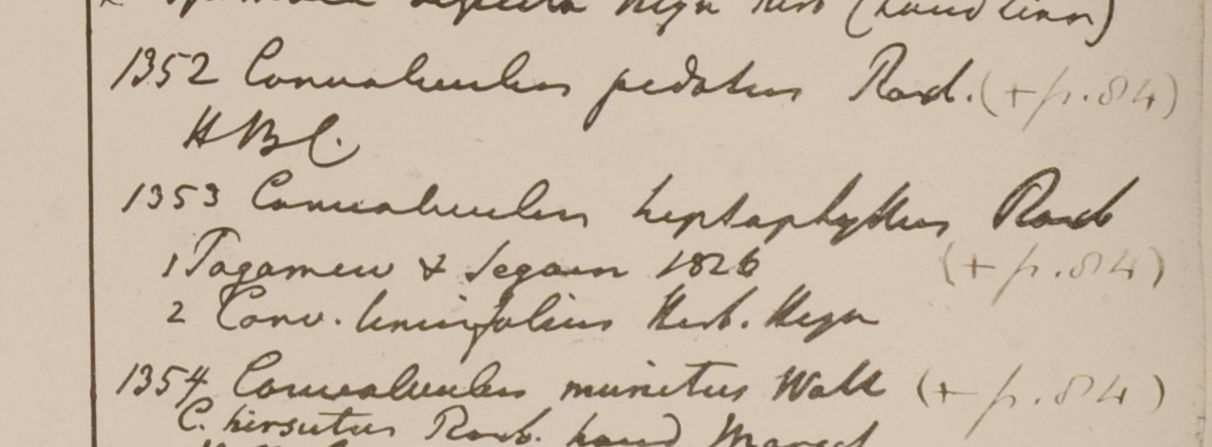 Herb (hand linn)
1352 Convolvulus pedatus Roxb. (+ p. 84)
HBC.
1353 Convolvulus heptaphyllus Roxb
1 Tagamew & Segaen 1826 (+ p. 84)
2 Conv. linifolius Herb. Heyn
1354 Convolvulus munitus Wall (+ p. 84)
C. hirsutus Roxb. hand